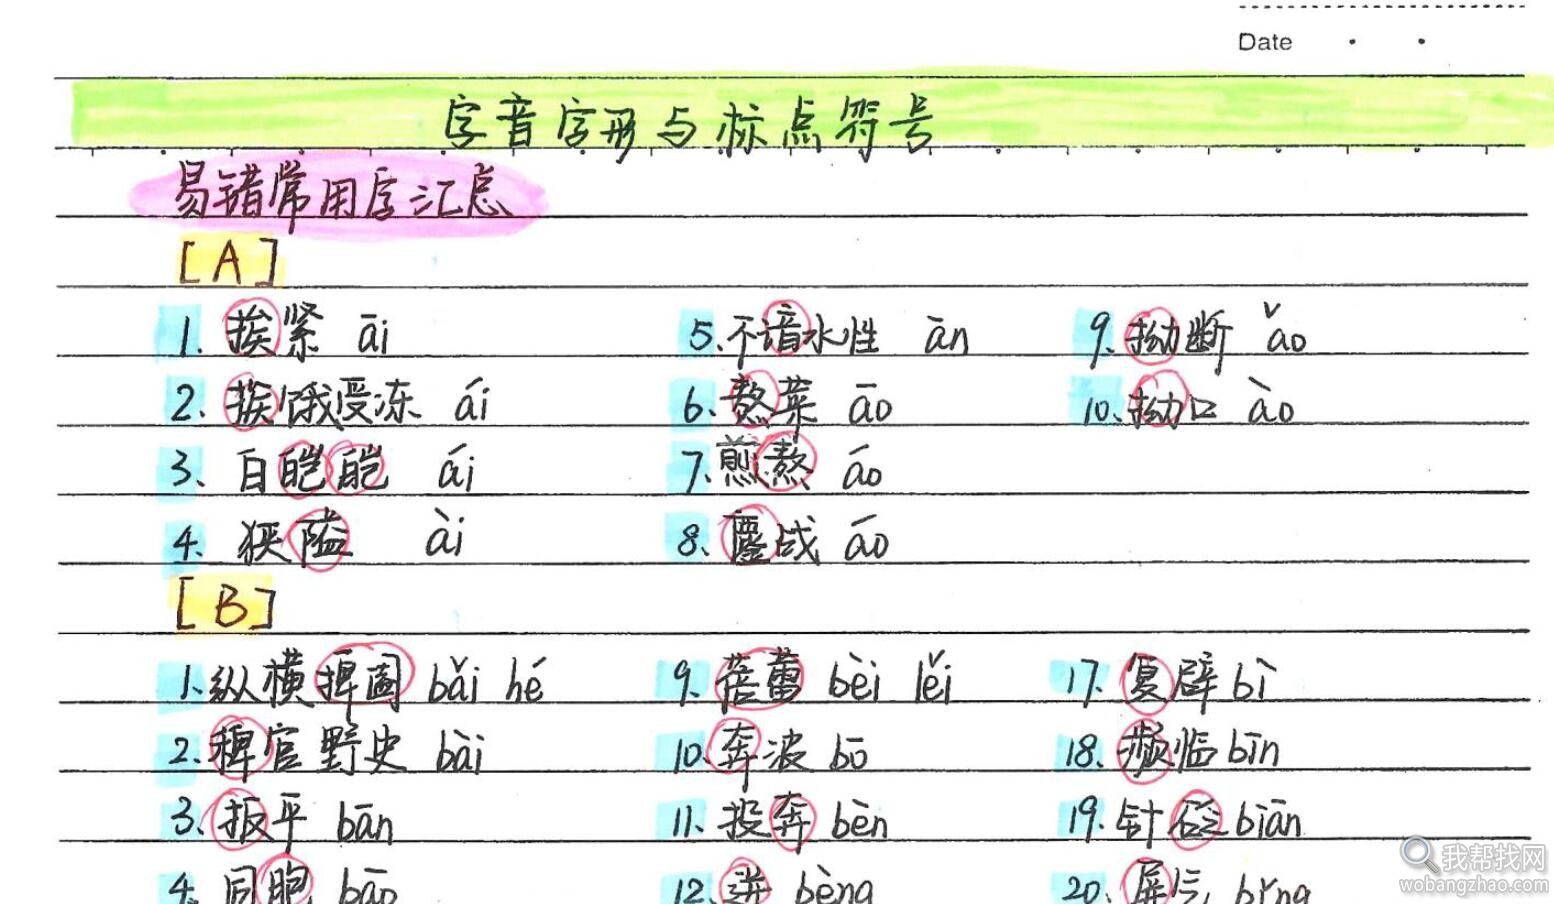 Date
字音字形与标点符号
易错常用字汇总
[A]
1. 挨紧 āi 5、不谙水性 ān 9. 拗断 ǎo
2、挨饿受冻 ái 6、熬菜 āo 10、拗口 ào
3、白皑皑 ái 7、煎熬 áo
4、狭隘 ài 8、鏖战 áo
[B]
1、纵横捭阖 bǎi hé 9、蓓蕾 bèi lěi 17. 复辟 bì
2、稗官野史 bài 10、奔波 bō 18、濒临 bīn
3、扳平 bān 11、投奔 bèn 19、针砭 biān
4、同胞 bāo 12、迸 bèng 20、屏气 bǐng
我帮找网
wobangzhao.com